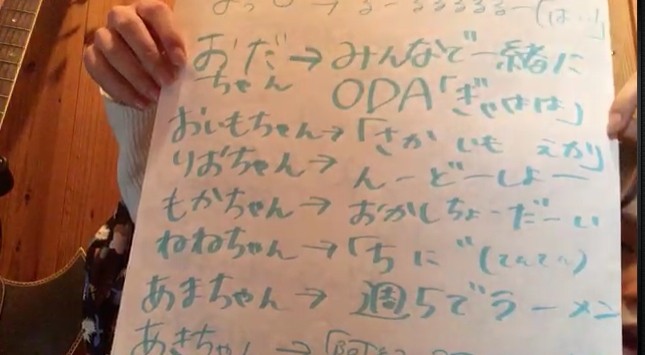 おだ→みんなで一緒に
ちゃん ODA「ぎゃはは」
おいもちゃん→「さか いも えかり
りおちゃん→んーどーしよー
もかちゃん→おかしちょーだーい
ねねちゃん→「ちに"(てんてん)
あまちゃん→週5でラーメン
あきちゃん→